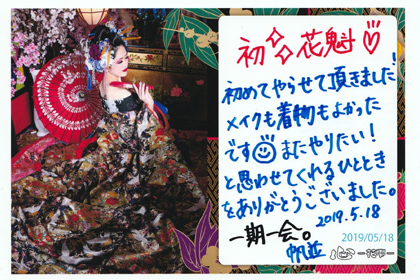 初 花魁
初めてやらせて頂きました!
メイクも着物もよかった
です またやりたい!
と思わせてくれるひととき
をありがとうございました。
2019.5.18
一期一会。
2019/05/18